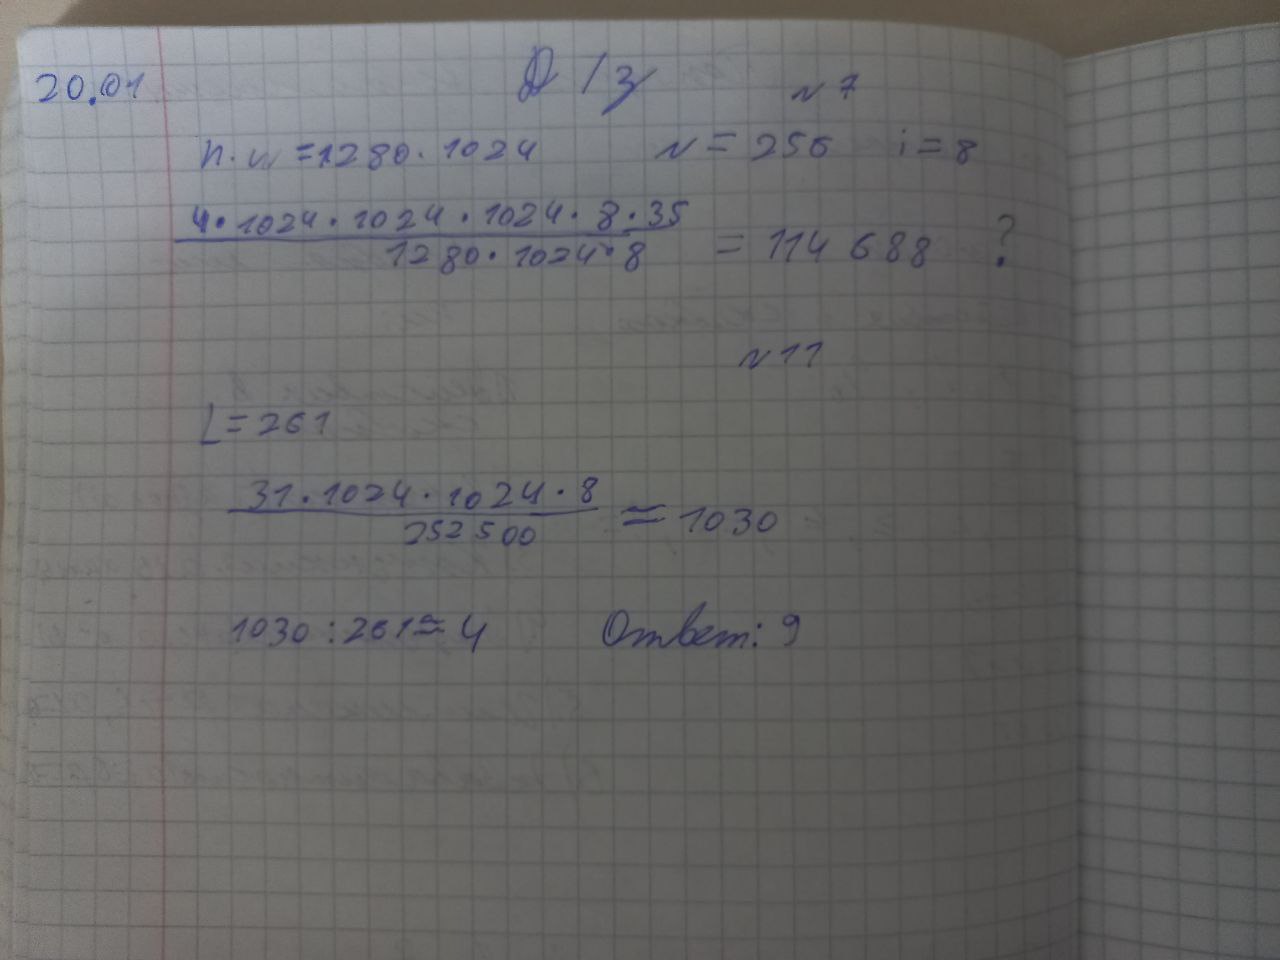 20.01 Д/з №7
h·w=1280·1024 N=256 i=8
4·1024·1024·1024·8·35
1280·1024·8
=114 688 ?
№11
L=261
31·1024·1024·8
252500
≈1030
1030:261≈4 Ответ: 9